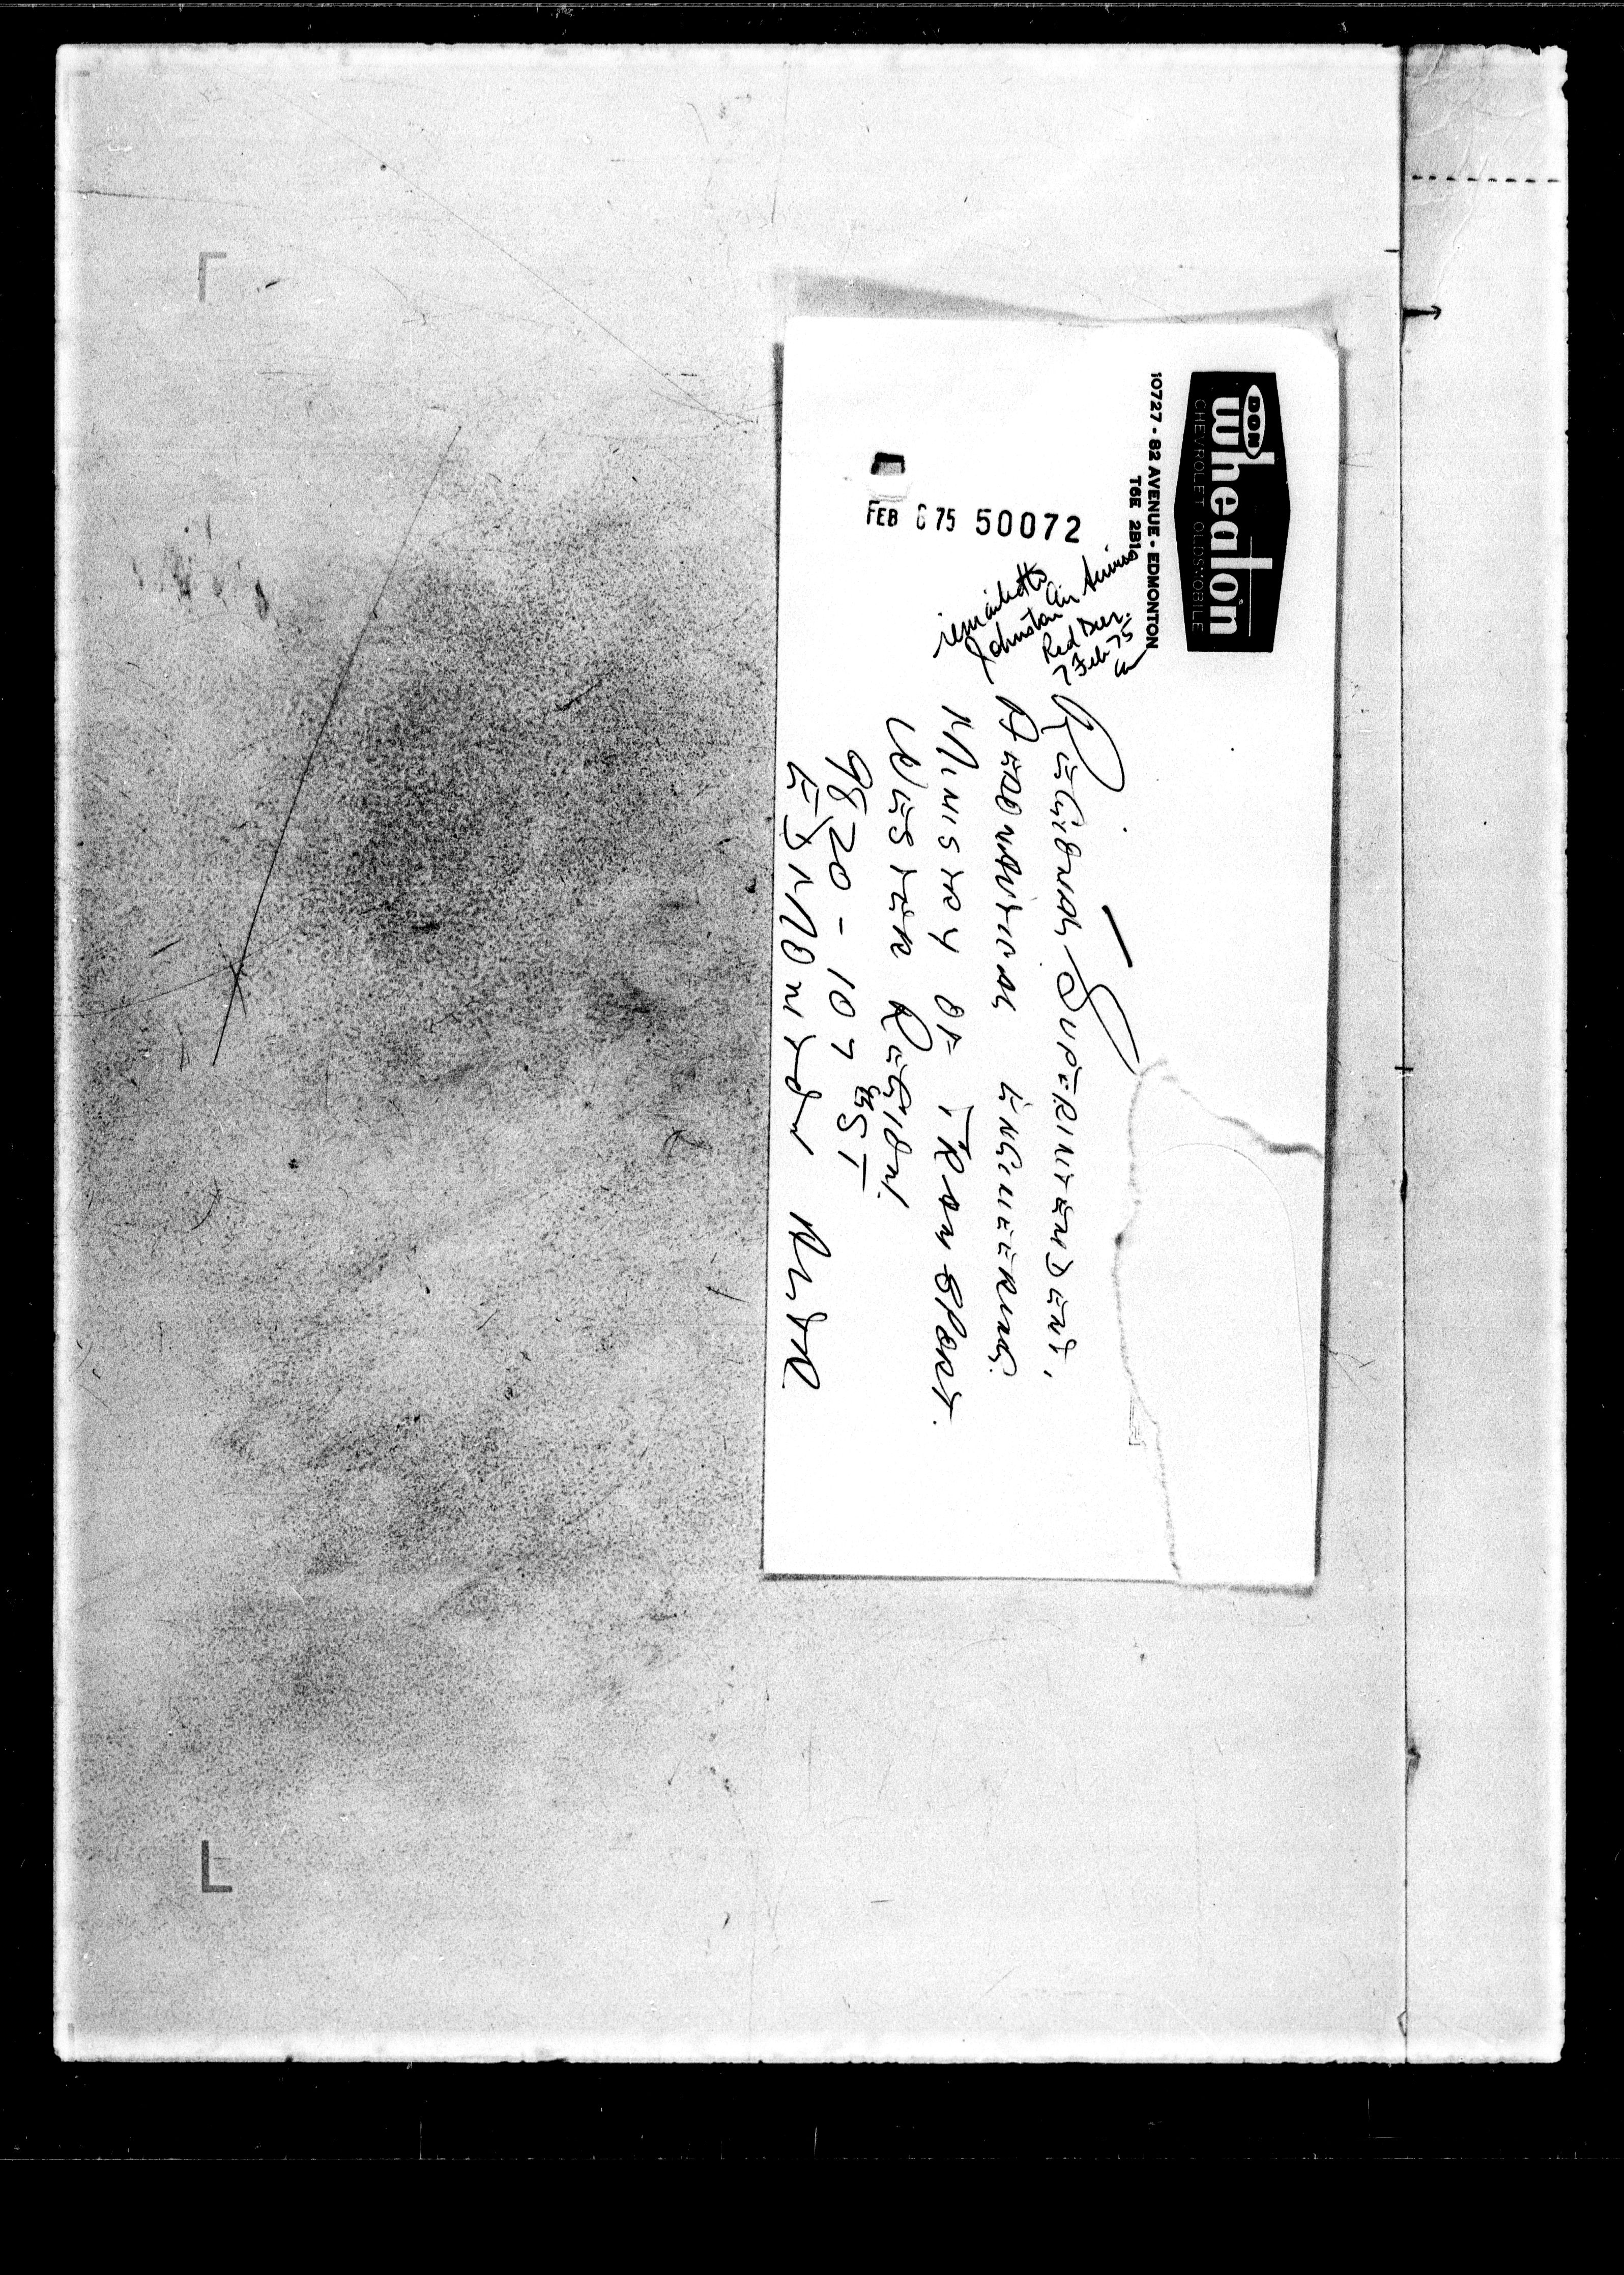 DON
wheaton
CHEVROLET OLDSMOBILE
10727 - 82 AVENUE - EDMONTON
T6E 2B1
FEB 6 75 50072
remailed to
Johnston Air Service
Red Deer.
7 Feb 75
REGIONAL SUPERINTENDENT,
AERONAUTICAL ENGINEERING
MINISTRY OF TRANSPORT.
WESTERN REGION.
9820 - 107 ST
EDMONTON ALTA